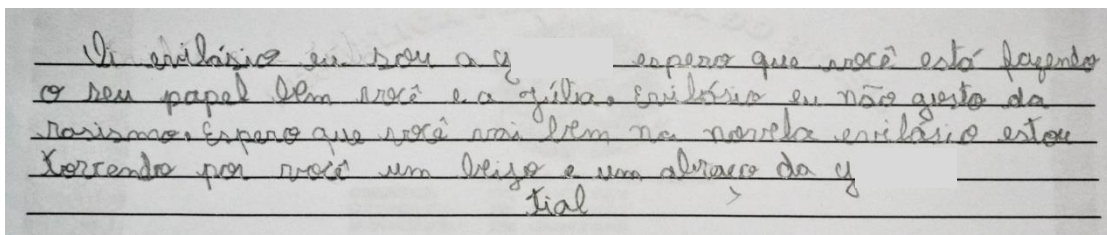 Oi evilásio eu sou a y espero que você está fazendo
o seu papel bem você e a júlia. Evilásio eu não gosto da
rasismo. Espero que você vai bem na novela evilásio estou
torcendo por você um beijo e um abraço da y
tial